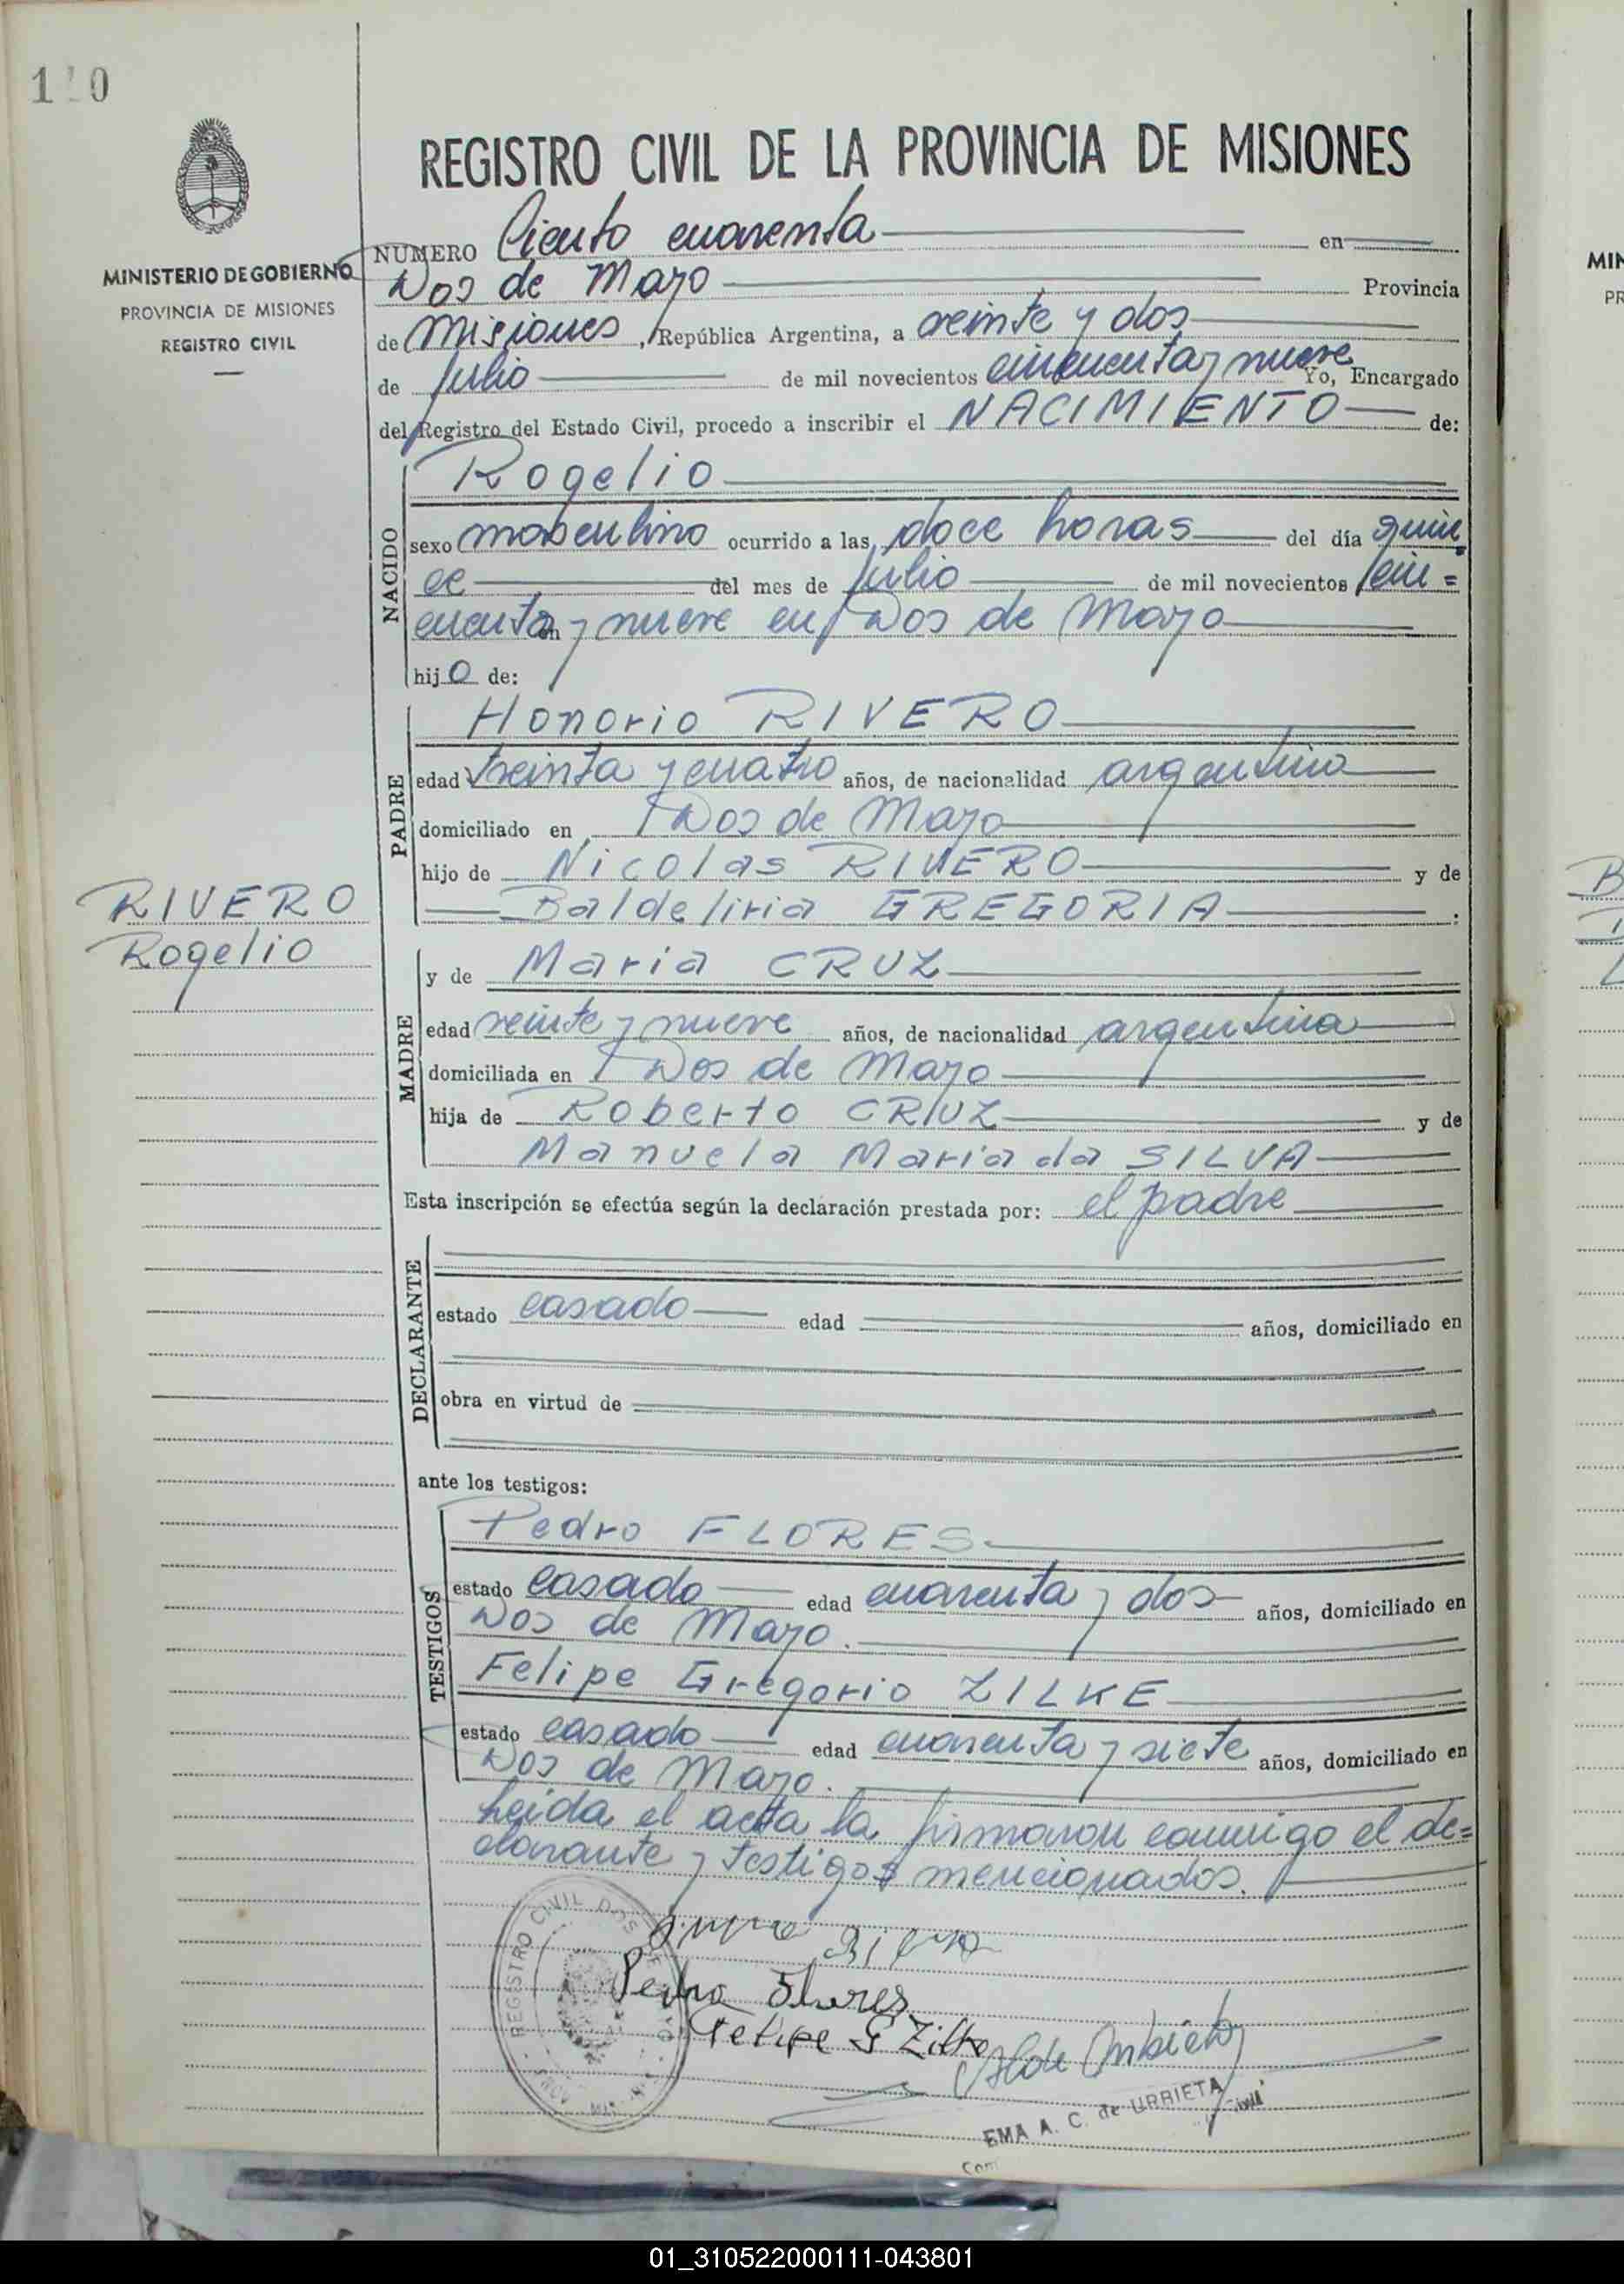 REGISTRO CIVIL DE LA PROVINCIA DE MISIONES
MINISTERIO DE GOBIERNO
PROVINCIA DE MISIONES
REGISTRO CIVIL
NUMERO Ciento cuarenta en
Dos de Mayo Provincia
de Misiones, República Argentina, a veinte y dos
de Julio de mil novecientos cincuenta y nueve Yo, Encargado
del Registro del Estado Civil, procedo a inscribir el NACIMIENTO de:
NACIDO
Rogelio
sexo masculino ocurrido a las doce horas del día quin
ce del mes de julio de mil novecientos cin=
cuenta y nueve en Dos de Mayo
hijo de:
PADRE
Honorio RIVERO
edad treinta y cuatro años, de nacionalidad argentina
domiciliado en Dos de Mayo
hijo de Nicolas RIVERO y de
Baldeliria GREGORIA.
RIVERO
Rogelio
MADRE
y de Maria CRUZ
edad veinte y nueve años, de nacionalidad argentina
domiciliada en Dos de Mayo
hija de Roberto CRUZ y de
Manuela Maria da SILVA
Esta inscripción se efectúa según la declaración prestada por: el padre
DECLARANTE
estado casado edad años, domiciliado en
obra en virtud de
ante los testigos:
TESTIGOS
Pedro FLORES
estado casado edad cuarenta y dos años, domiciliado en
Dos de Mayo.
Felipe Gregorio ZILKE
estado casado edad cuarenta y siete años, domiciliado en
Dos de Mayo.
Leida el acta la firmaron conmigo el de=
clarante y testigos mencionados.
REGISTRO CIVIL DOS DE MAYO
Pedro Flores
Felipe G Zilke
EMA A. C. de URRIETA
01_310522000111-043801